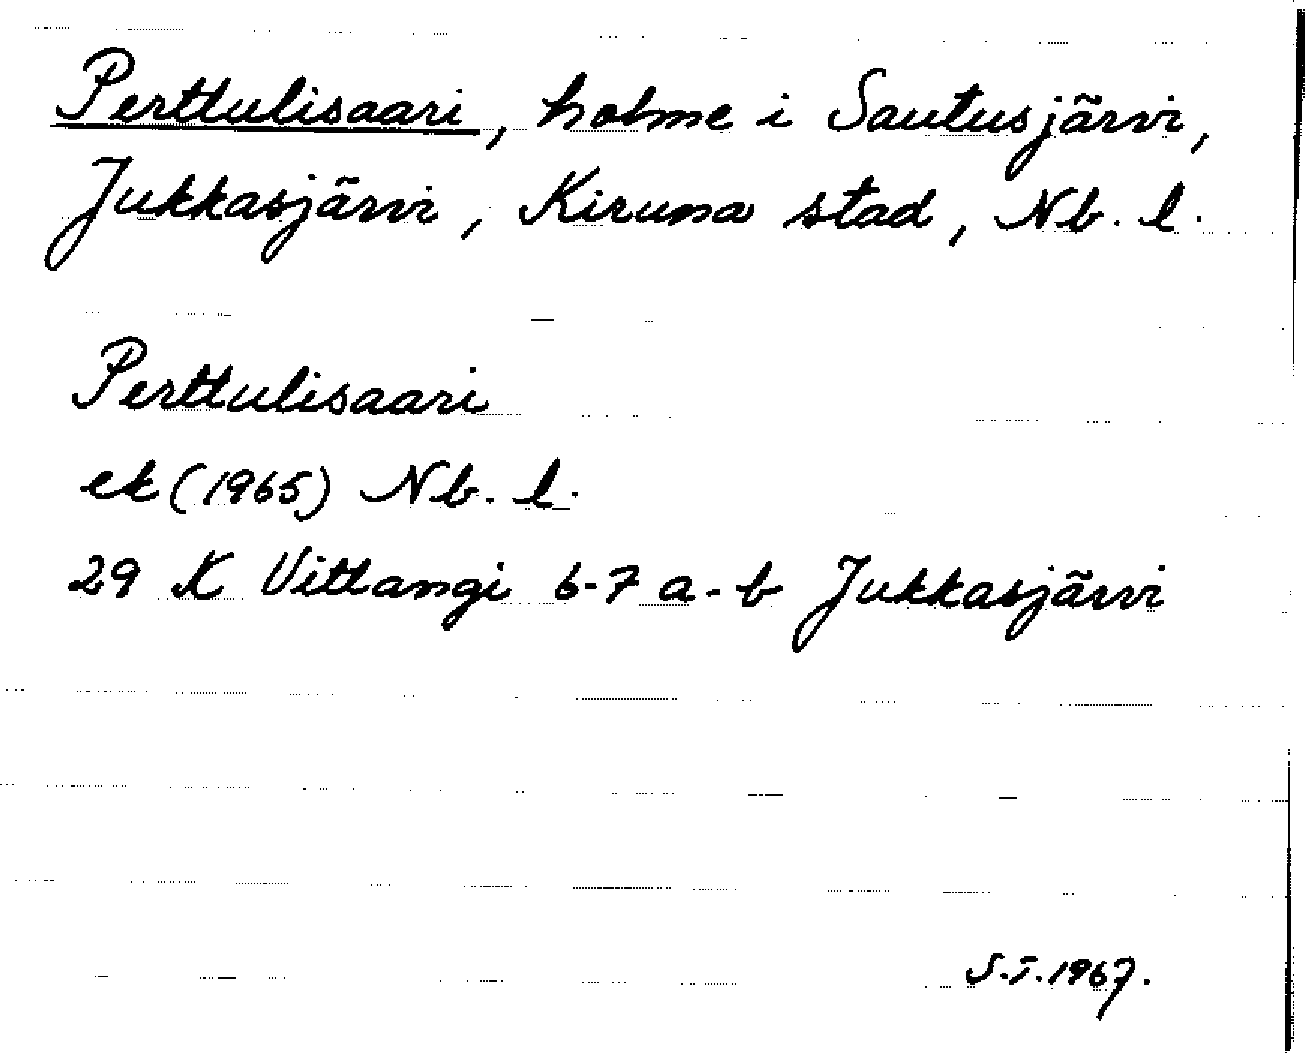 Perttulisaari, holme i Sautusjärvi,
Jukkasjärvi, Kiruna stad, Nb. l.
Perttulisaari
ek (1965) Nb. l.
29 K Vittangi 6-7 a-b Jukkasjärvi
S.T. 1967.